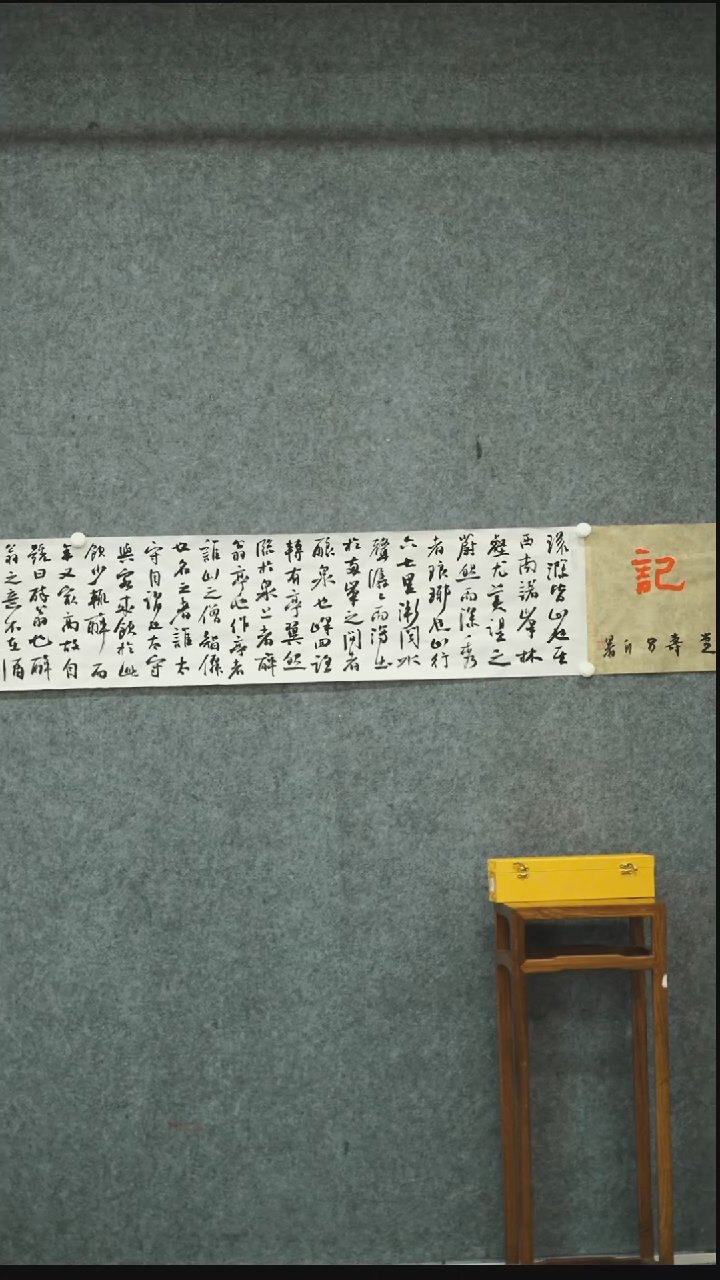 記
壽
自署
環滁皆山也其
西南諸峰林
壑尤美望之
蔚然而深秀
者琅琊也山行
六七里漸聞水
聲潺〻而瀉出
於兩峯之間者
釀泉也峰回路
轉有亭翼然
臨於泉上者醉
翁亭也作亭者
誰山之僧智僊
也名之者誰太
守自謂也太守
與客來飲於此
飲少輒醉而
年又最高故自
號曰醉翁也醉
翁之意不在酒